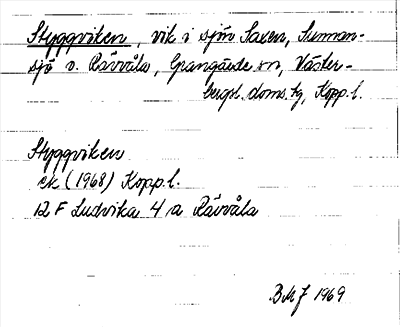 Styggviken, vik i sjön Saxen, Sunnan-
sjö o. Rävvåla, Grangärde sn, Väster-
bergsl. doms.tg, Kopp.l.
Styggviken
ek (1968) Kopp.l.
12 F Ludvika 4 a Rävvåla
BMJ 1969